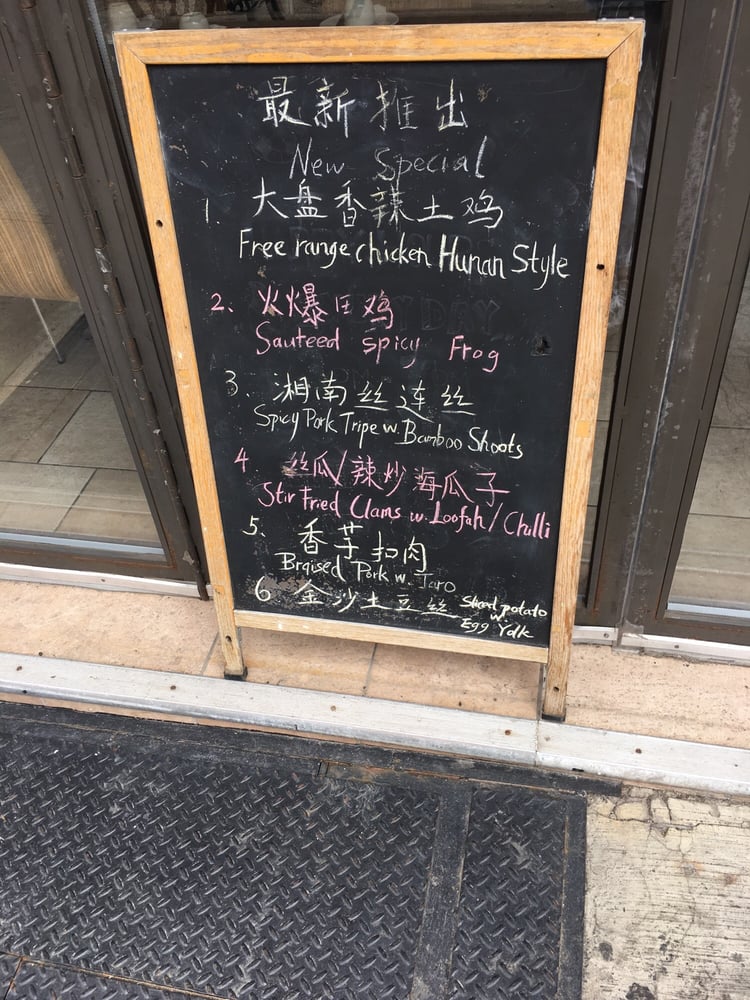 最新推出
New Special
1. 大盘香辣土鸡
Free range chicken Hunan Style
2. 火爆田鸡
Sauteed spicy Frog
3. 湘南丝连丝
Spicy Pork Tripe w. Bamboo Shoots
4 丝瓜/辣炒海瓜子
Stir Fried Clams w. Loofah/Chilli
5. 香芋扣肉
Braised Pork w. Taro
6 金沙土豆丝 Shred potato
w.
Egg Yolk